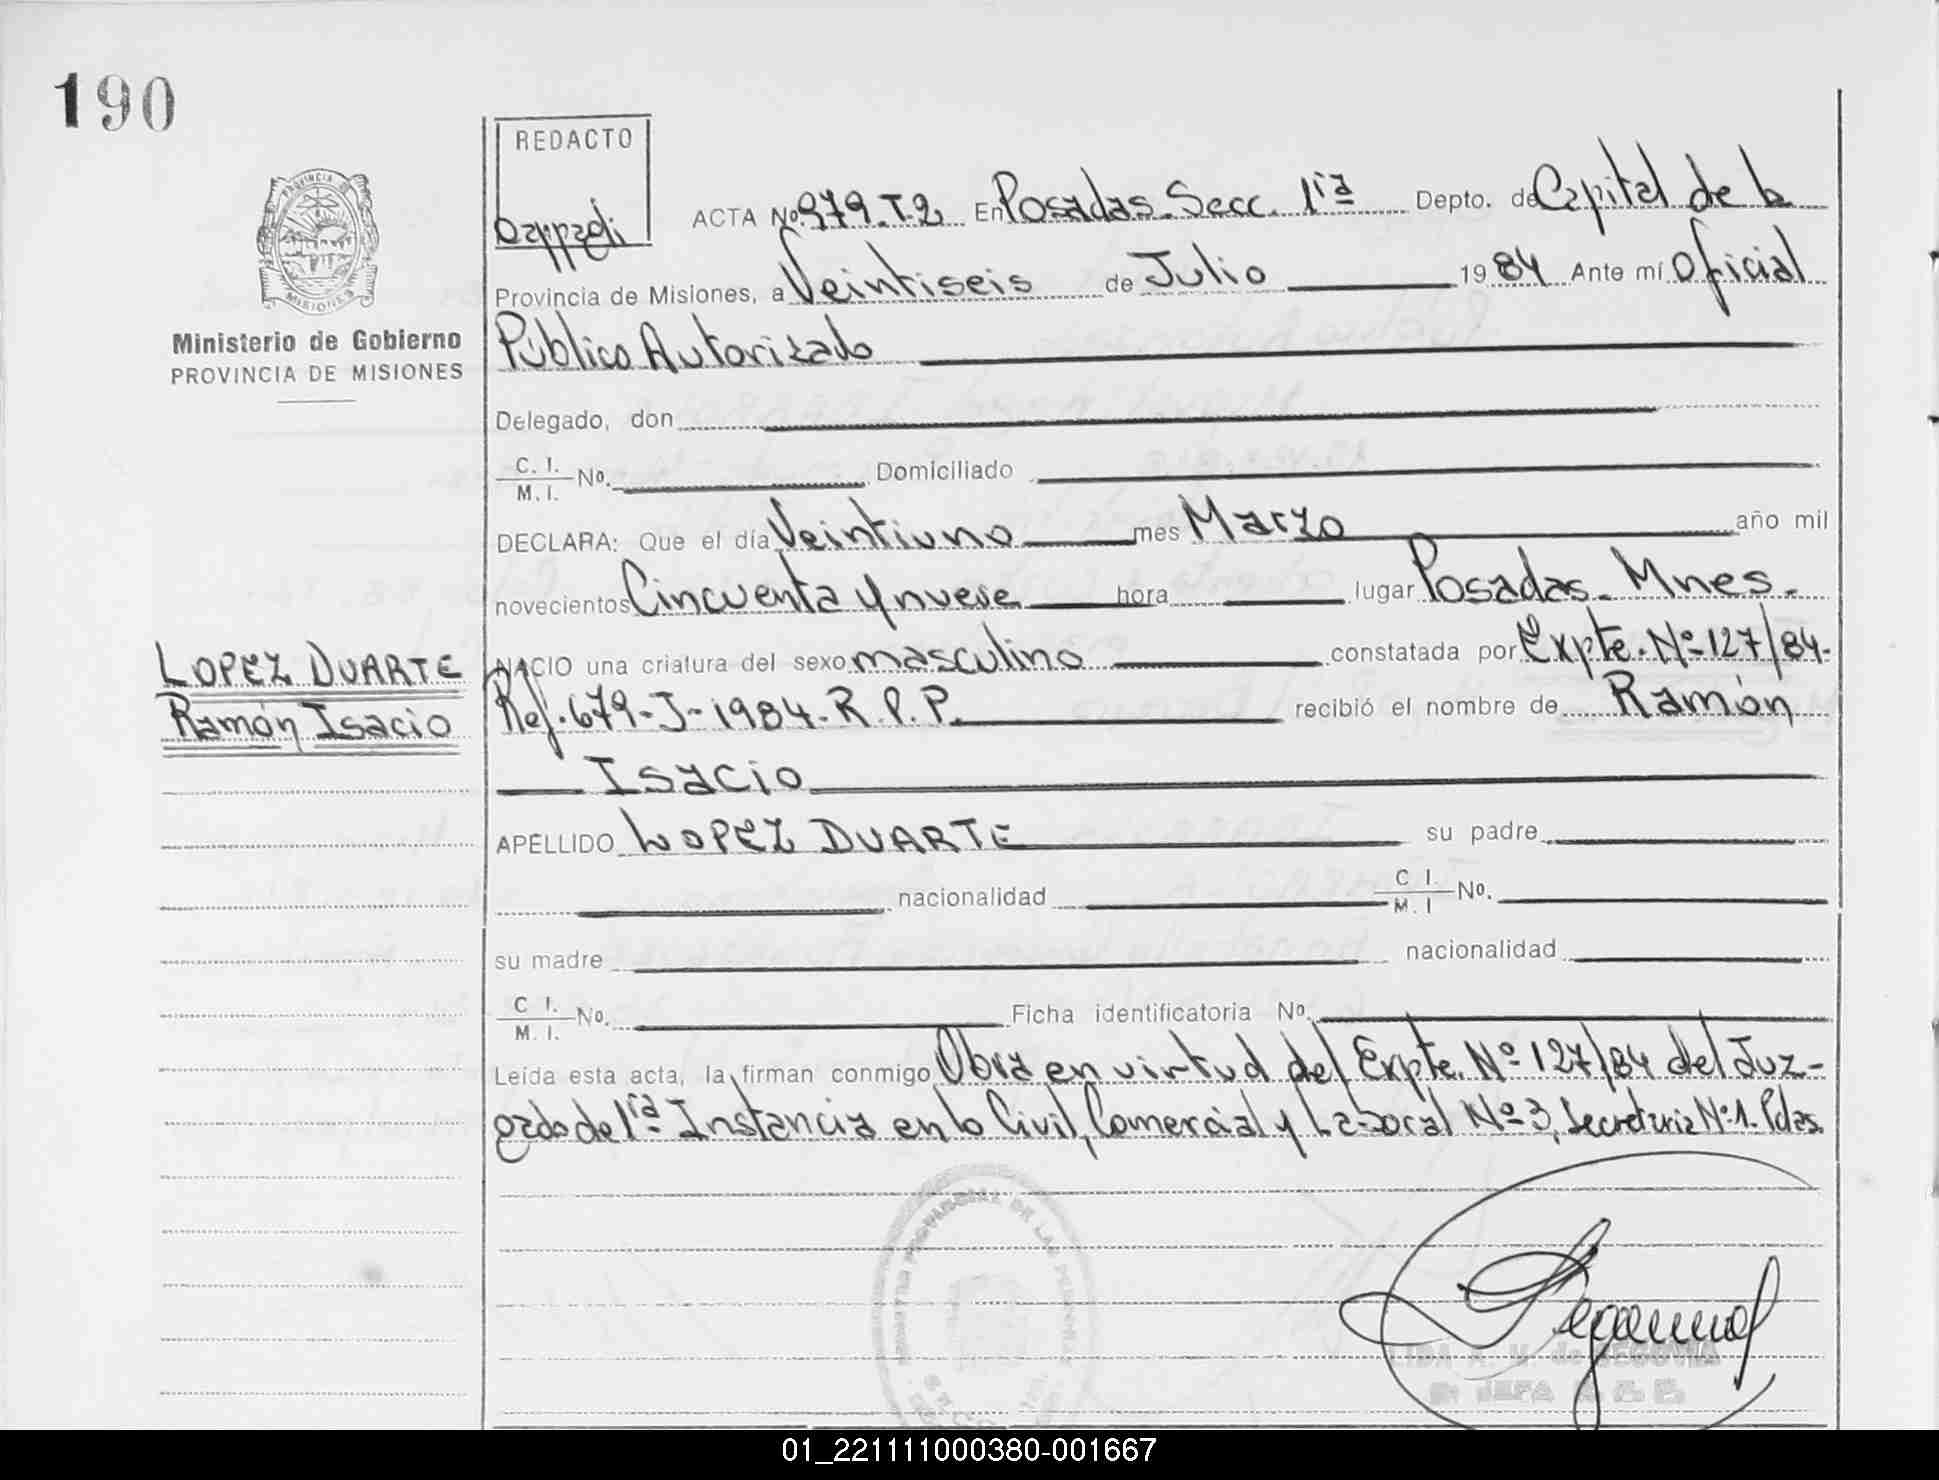 190
REDACTO
ACTA Nº 979.T.2 En Posadas. Secc. 1ra Depto. de Capital de la
Provincia de Misiones, a Veintiseis de Julio 1984 Ante mi Oficial
Público Autorizado
PROVINCIA DE
MISIONES
Ministerio de Gobierno
PROVINCIA DE MISIONES
Delegado, don
C. I. Nº. Domiciliado
M. I.
DECLARA: Que el día Veintiuno mes Marzo año mil
novecientos Cincuenta y nueve hora lugar Posadas. Mnes.
LOPEZ DUARTE
Ramón Isacio
NACIO una criatura del sexo masculino constatada por Expte. Nº 127/84.
Ref. 679-J-1984. R.P.P. recibió el nombre de Ramón
Isacio
APELLIDO LOPEZ DUARTE su padre
nacionalidad C I. Nº.
M. I
su madre nacionalidad
C I. Nº. Ficha identificatoria Nº.
M. I.
Leída esta acta, la firman conmigo Obra en virtud del Expte. Nº 127/84 del Juz-
gado de 1ra Instancia en lo Civil, Comercial y Laboral Nº 3, Secretaria Nº 1. Pdas.
LIDA A. M. de SEGOVIA
01_221111000380-001667